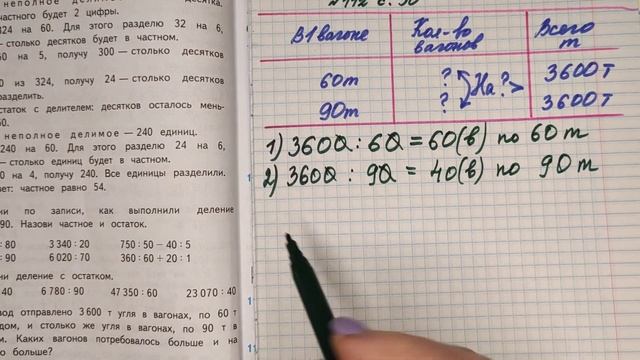 десятка.
частного будет 2 цифры.
324 на 60. Для этого разделю 32 на 6,
— столько десятков будет в частном.
60 на 5, получу 300 — столько десятков
0 из 324, получу 24 — столько десятков
разделить.
статок с делителем: десятков осталось мень-
60.
неполное делимое — 240 единиц.
240 на 60. Для этого разделю 24 на 6,
— столько единиц будет в частном.
60 на 4, получу 240. Все единицы разделили.
вет: частное равно 54.
ни по записи, как выполнили деление
90. Назови частное и остаток.
: 80 3 340 : 20 750 : 50 − 40 : 5
: 90 6 020 : 70 360 : 60 + 20 : 1
ни деление с остатком.
40 6 780 : 90 47 350 : 60 23 070 : 40
вод отправлено 3 600 т угля в вагонах, по 60 т
дом, и столько же угля в вагонах, по 90 т в
м. Каких вагонов потребовалось больше и на
о больше?
В 1 вагоне Кол-во вагонов Всего т
60т ? На ?> 3600 т
90т ? 3600 т
1) 3600 : 60 = 60 (в) по 60 т
2) 3600 : 90 = 40 (в) по 90 т